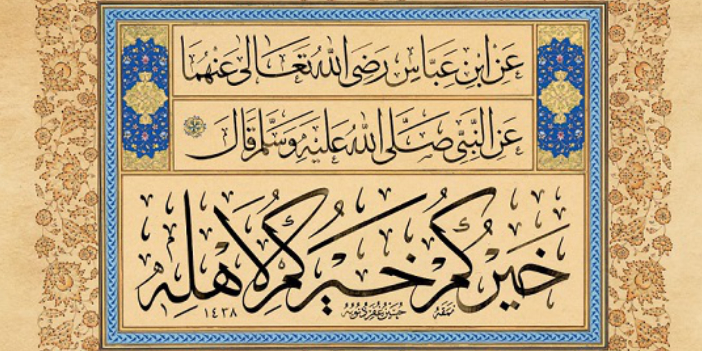 عَنِ ابْنِ عَبَّاسٍ رَضِيَ اللهُ تَعَالَى عَنْهُمَا
عَنِ النَّبِيِّ صَلَّى اللهُ عَلَيْهِ وَسَلَّمَ قَالَ
خَيْرُكُمْ خَيْرُكُمْ لِاَهْلِهِ
نمقه حسين ١٤٣٨